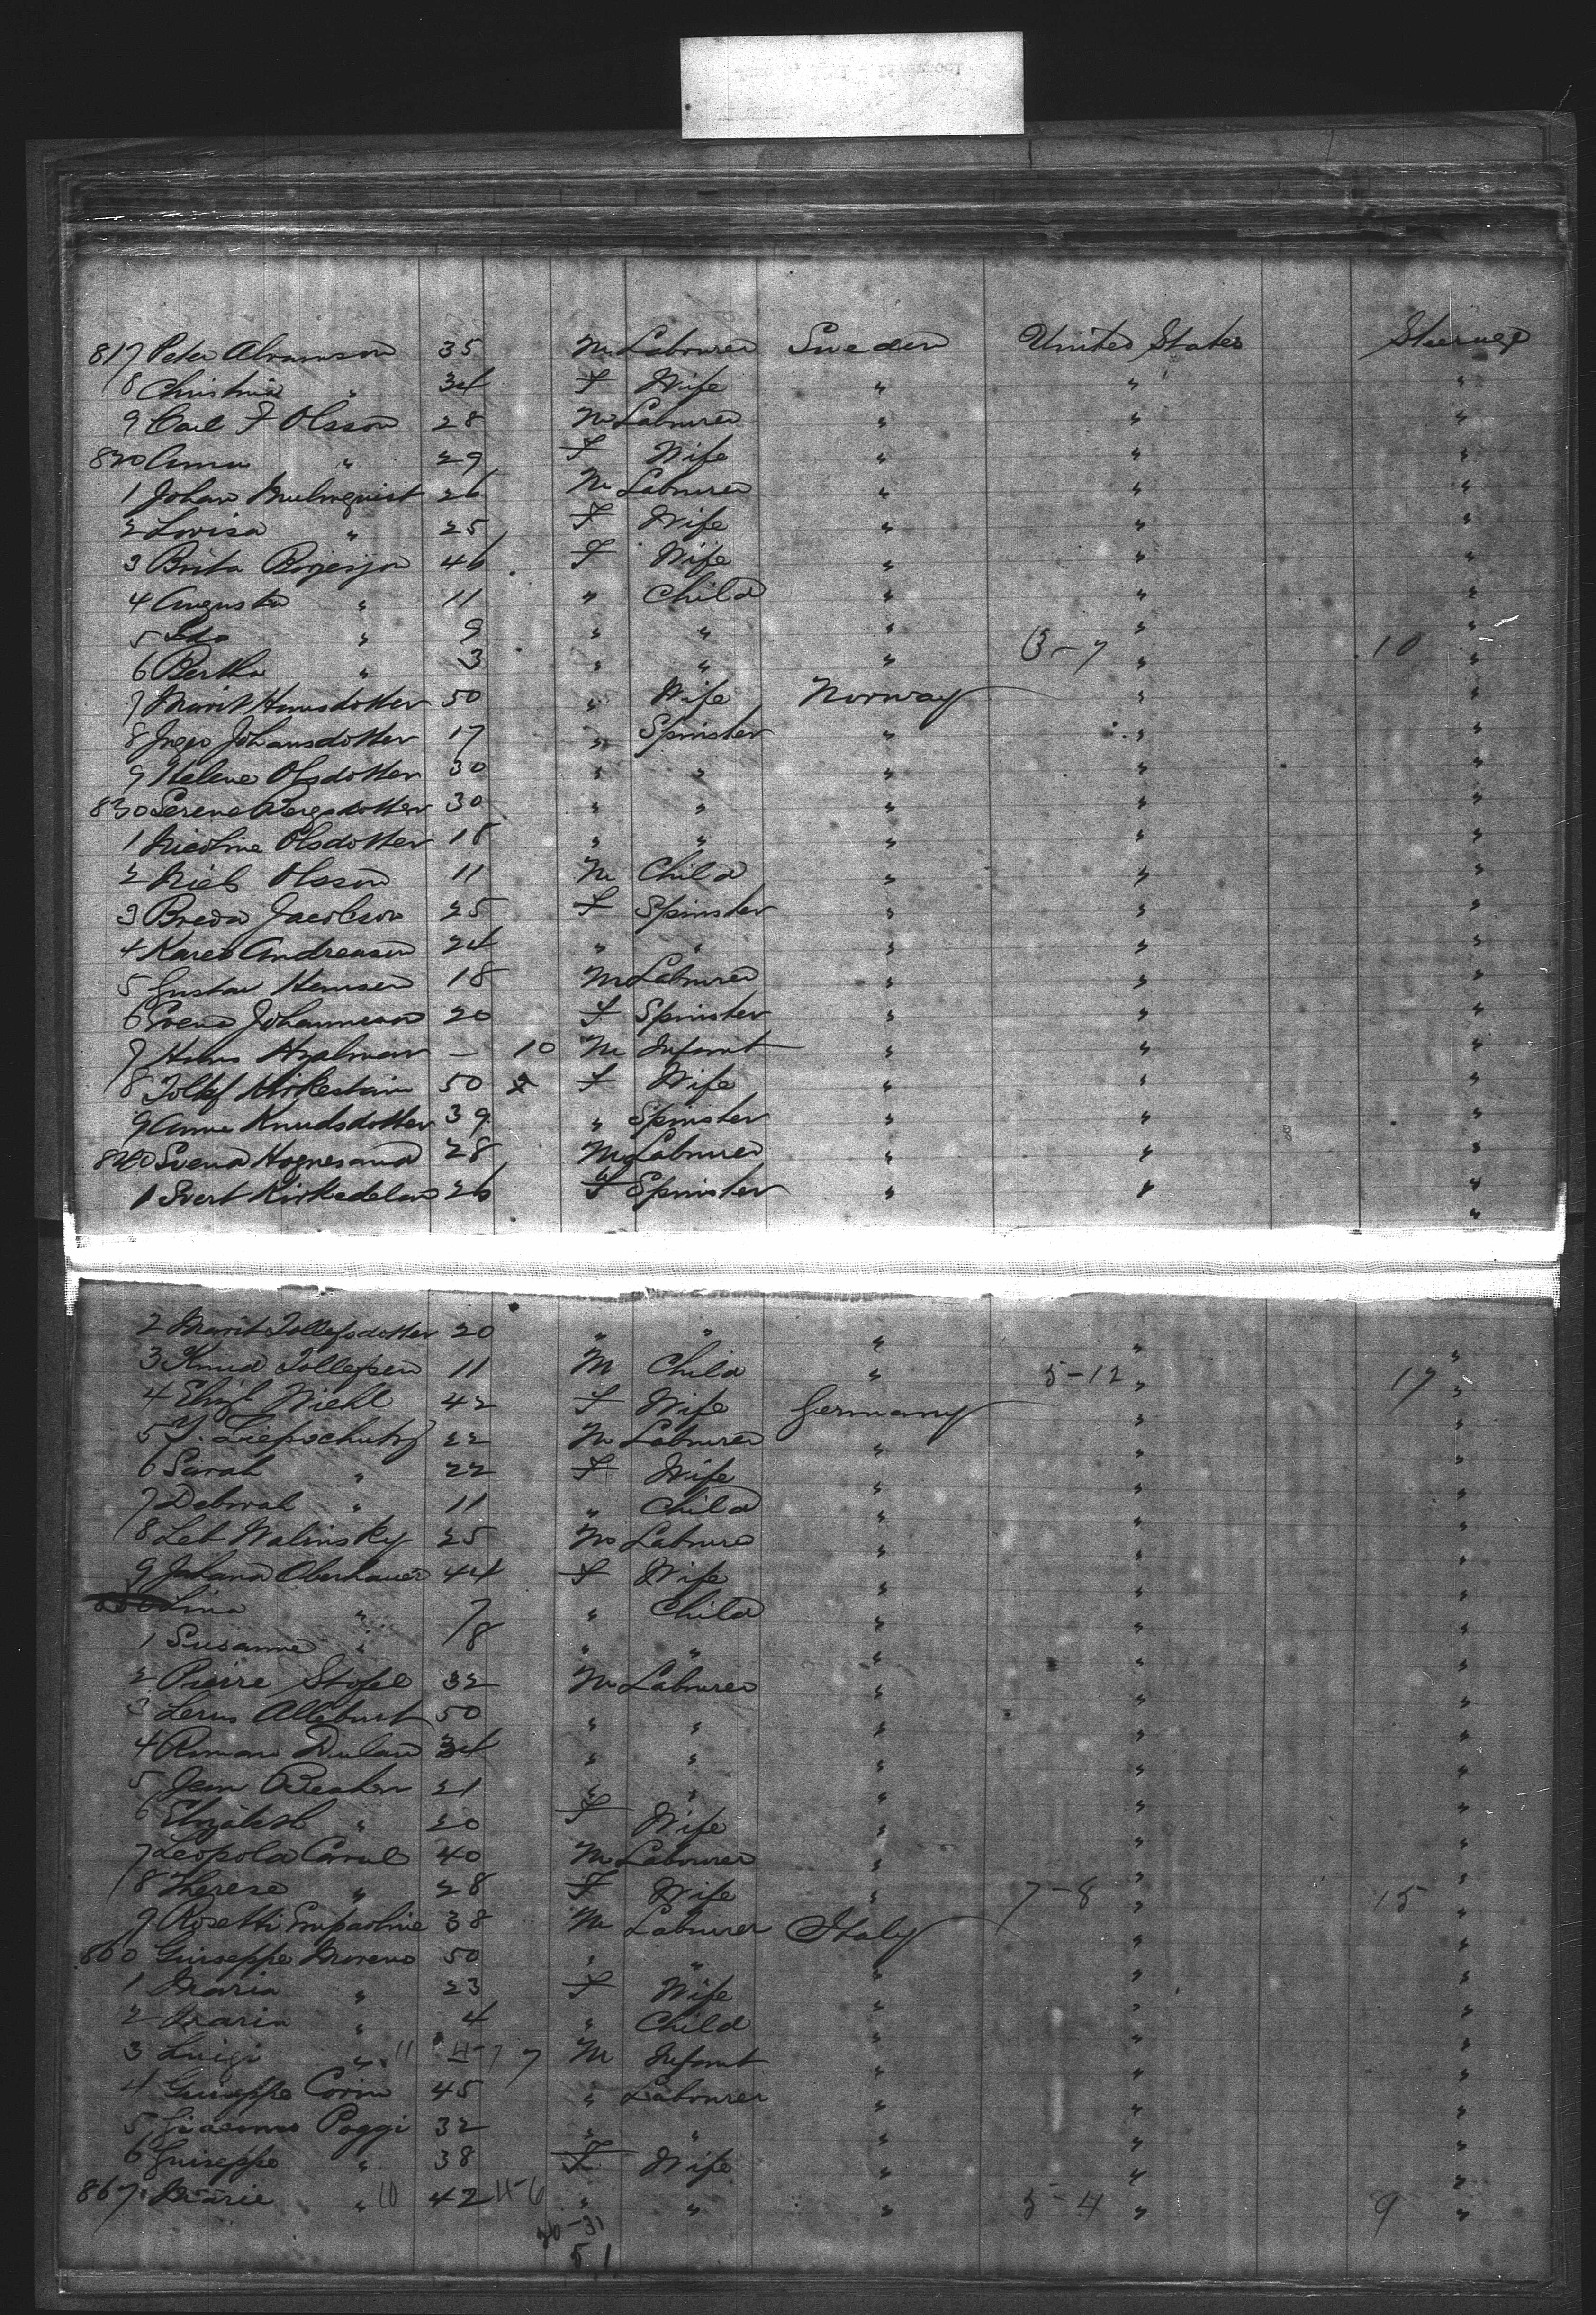 817 Peter Abramson 35 M Labourer Sweden United States Steerage
8 Christina " 34 F Wife " " "
9 Carl F Olsson 28 M Labourer " " "
820 Anna " 29 F Wife " " "
1 Johan Malmquist 26 M Labourer " " "
2 Lovisa " 25 F Wife " " "
3 Brita 46 F Wife " " "
4 Augusta " 11 " Child " " "
5 Ida " 9 " " " " "
6 Bertha " 3 " " " 3-7 " 10 "
7 Marit Hansdotter 50 " Wife Norway " "
8 Johansdotter 17 " Spinster " " "
9 Helene Olsdotter 30 " " " " "
830 Serene Bergsdotter 30 " " " " "
1 Nicoline Olsdotter 18 " " " " "
2 Niels Olsson 11 M Child " " "
3 Breda Jacobson 25 F Spinster " " "
4 Karen Andreasen 24 " " " " "
5 Gustav Hansen 18 M Labourer " " "
6 Svend Johannesen 20 F Spinster " " "
7 Hans Hjalmar - 10 M Infant " " "
8 Tollef Kirkestain 50 F Wife " " "
9 Anne Knudsdotter 39 " Spinster " " "
840 Svend Hognesand 28 M Labourer " " "
1 Svert Kirkedelen 26 F Spinster " " "
"
2 Marit Tollefsdotter 20 " " " " "
3 Knud Tollefsen 11 M Child " 5-12 " 17 "
4 Elizt Wiehl 42 F Wife Germany " "
5 Y. Liepschutz 22 M Labourer " " "
6 Sarah " 22 F Wife " " "
7 Deborah " 11 " Child " " "
8 Leb Walinsky 25 M Labourer " " "
9 Johana Oberhauer 44 F Wife " " "
850 Lina " 7 " Child " " "
1 Susanne " 8 " " " " "
2 Pierre Stofel 32 M Labourer " " "
3 50 " " " " "
4 Roman Dulau 34 " " " " "
5 Jean 21 " " " " "
6 Elizabeth " 20 F Wife " " "
7 Leopold 40 M Labourer " " "
8 Therese " 28 F Wife " 7-8 " 15 "
9 Rosetti 38 M Labourer Italy " "
860 Guiseppe Moreno 50 " " " " "
1 Maria " 23 F Wife " " "
2 Maria " 4 " Child " " "
3 Luigi " 11 4-7 7 M Infant " " "
4 Guiseppe 45 " Labourer " " "
5 Giacomo Poggi 32 " " " " "
6 Guiseppe " 38 F Wife " " "
867 Marie " 10 42 4-6 " " " 5-4 " 9 "
20-31
51